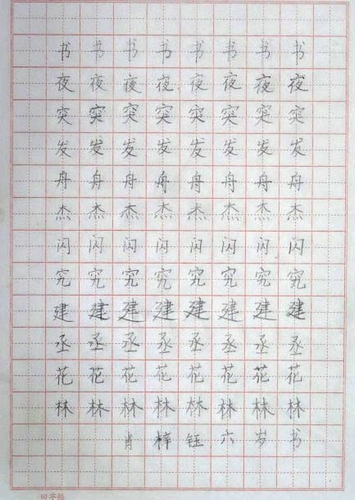 书 书 书 书 书 书 书 书
夜 夜 夜 夜 夜 夜 夜 夜
突 突 突 突 突 突 突 突
发 发 发 发 发 发 发 发
舟 舟 舟 舟 舟 舟 舟 舟
杰 杰 杰 杰 杰 杰 杰 杰
闪 闪 闪 闪 闪 闪 闪 闪
究 究 究 究 究 究 究 究
建 建 建 建 建 建 建 建
丞 丞 丞 丞 丞 丞 丞 丞
花 花 花 花 花 花 花 花
林 林 林 林 林 林 林 林
肖 梓 钰 六 岁 书